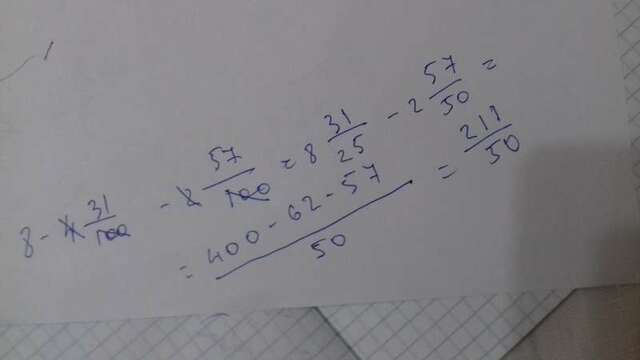 8 - 4 31/100 - 2 57/100 = 8 31/25 - 2 57/50 =
= (400 - 62 - 57)/50 = 211/50